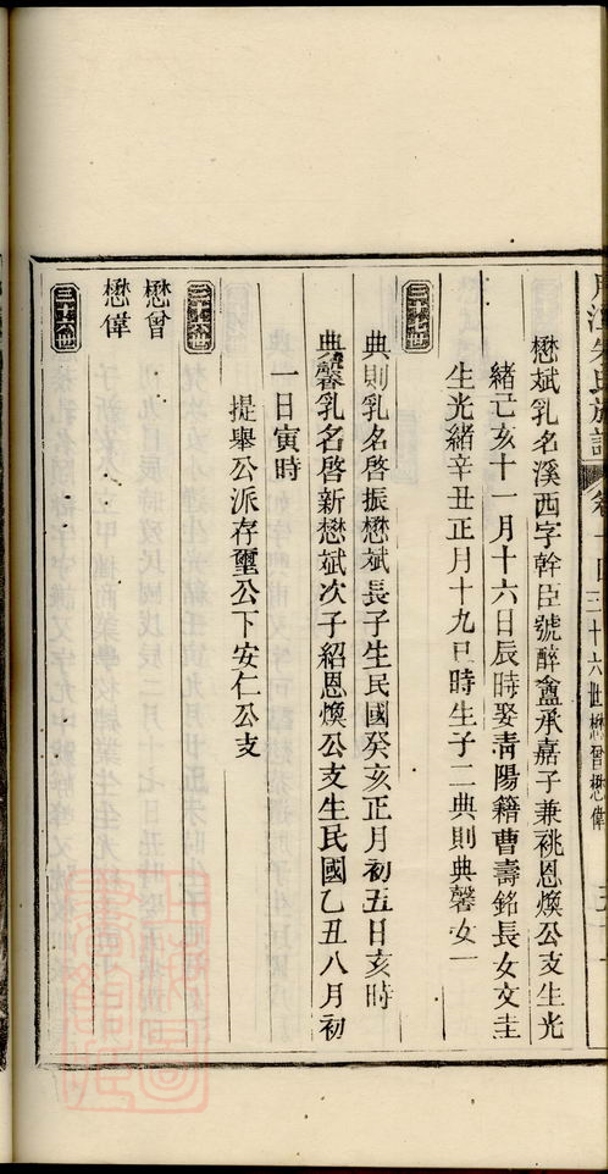 朱氏族譜 卷十四 三十六世懋曾懋偉
懋斌乳名溪西字幹臣號醉盦承嘉子兼祧恩煥公支生光
緒己亥十一月十六日辰時娶青陽籍曹壽銘長女文圭
生光緒辛丑正月十九巳時生子二典則典馨女一
三十七世
典則乳名啓振懋斌長子生民國癸亥正月初五日亥時
典馨乳名啓新懋斌次子紹恩煥公支生民國乙丑八月初
一日寅時
提舉公派存璽公下安仁公支
三十六世
懋曾
懋偉
三十六世